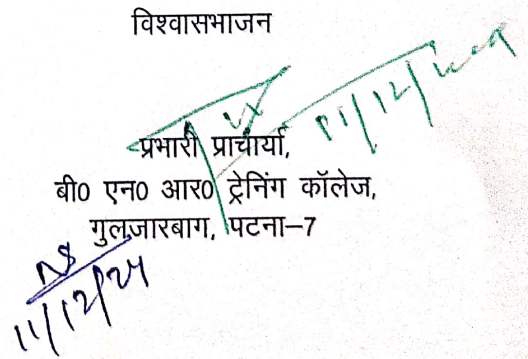 विश्वासभाजन
11/12/2024
प्रभारी प्राचार्या,
बी0 एन0 आर0 ट्रेनिंग कॉलेज,
गुलजारबाग, पटना–7
11/12/24